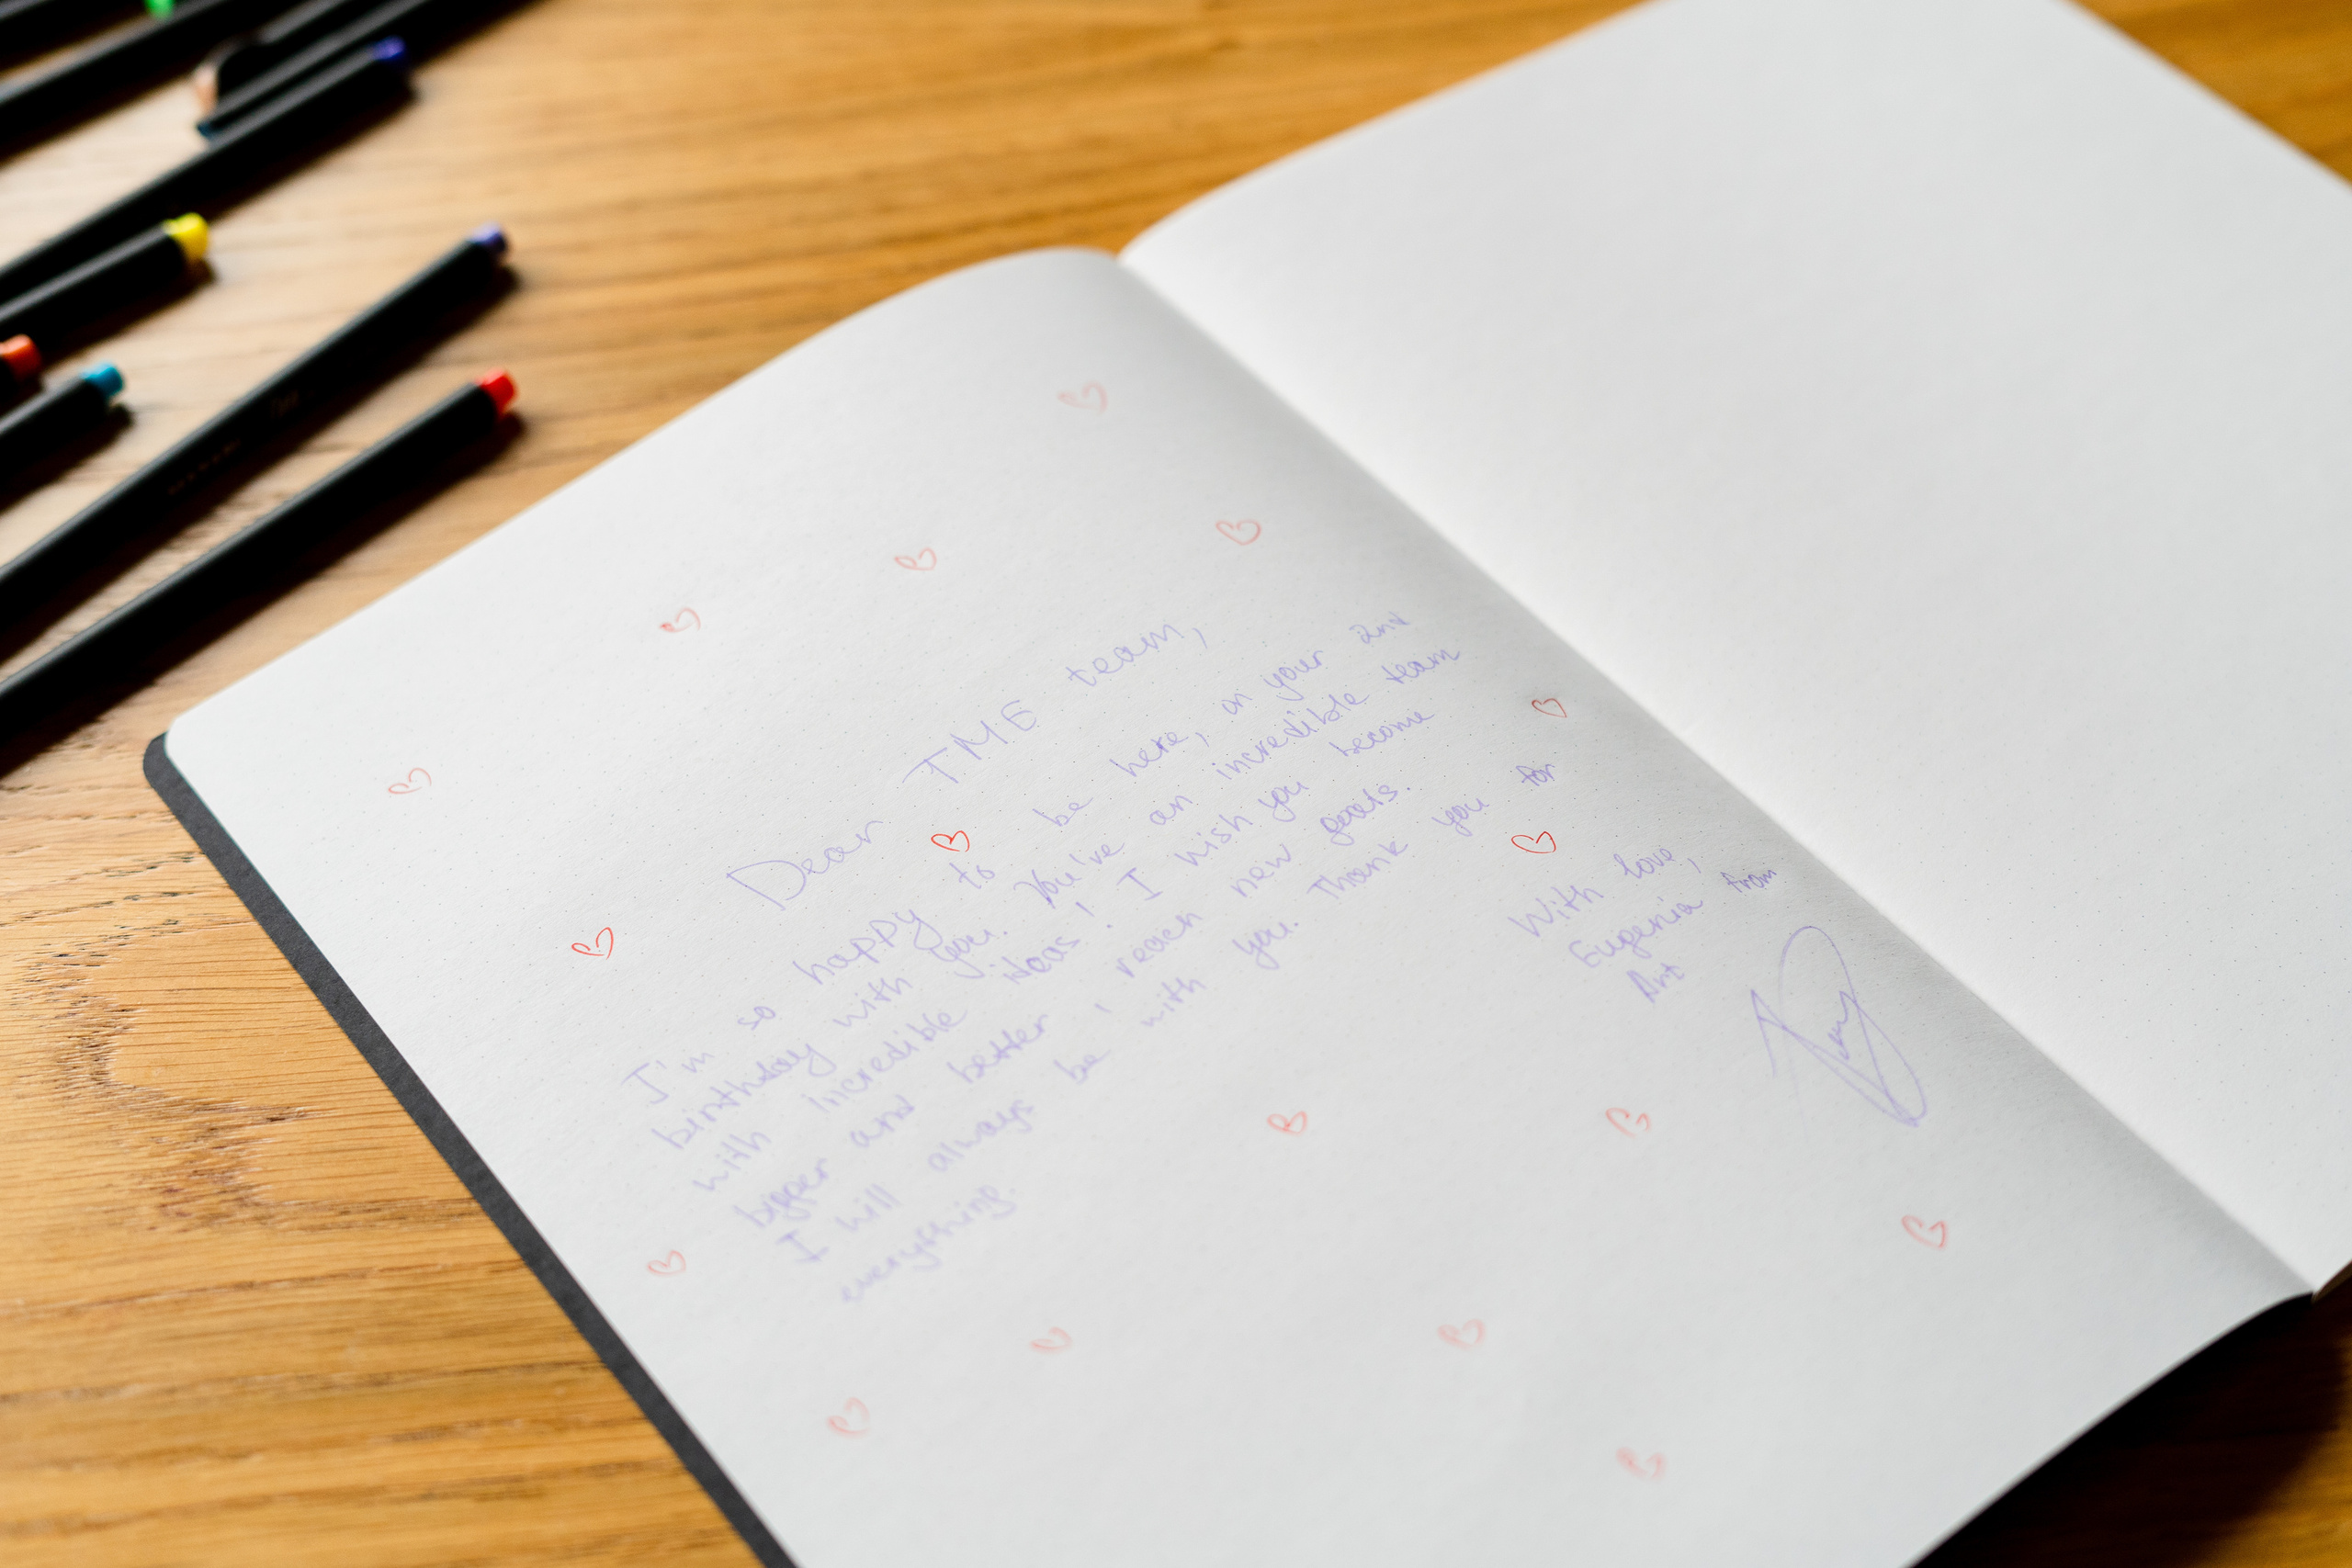 Dear TME team,
I'm so happy to be here, on your 2nd
birthday with you. You've an incredible team
with incredible ideas! I wish you become
bigger and better, reach new goals.
I will always be with you. Thank you for
everything.
With love,
Eugenia from
Art